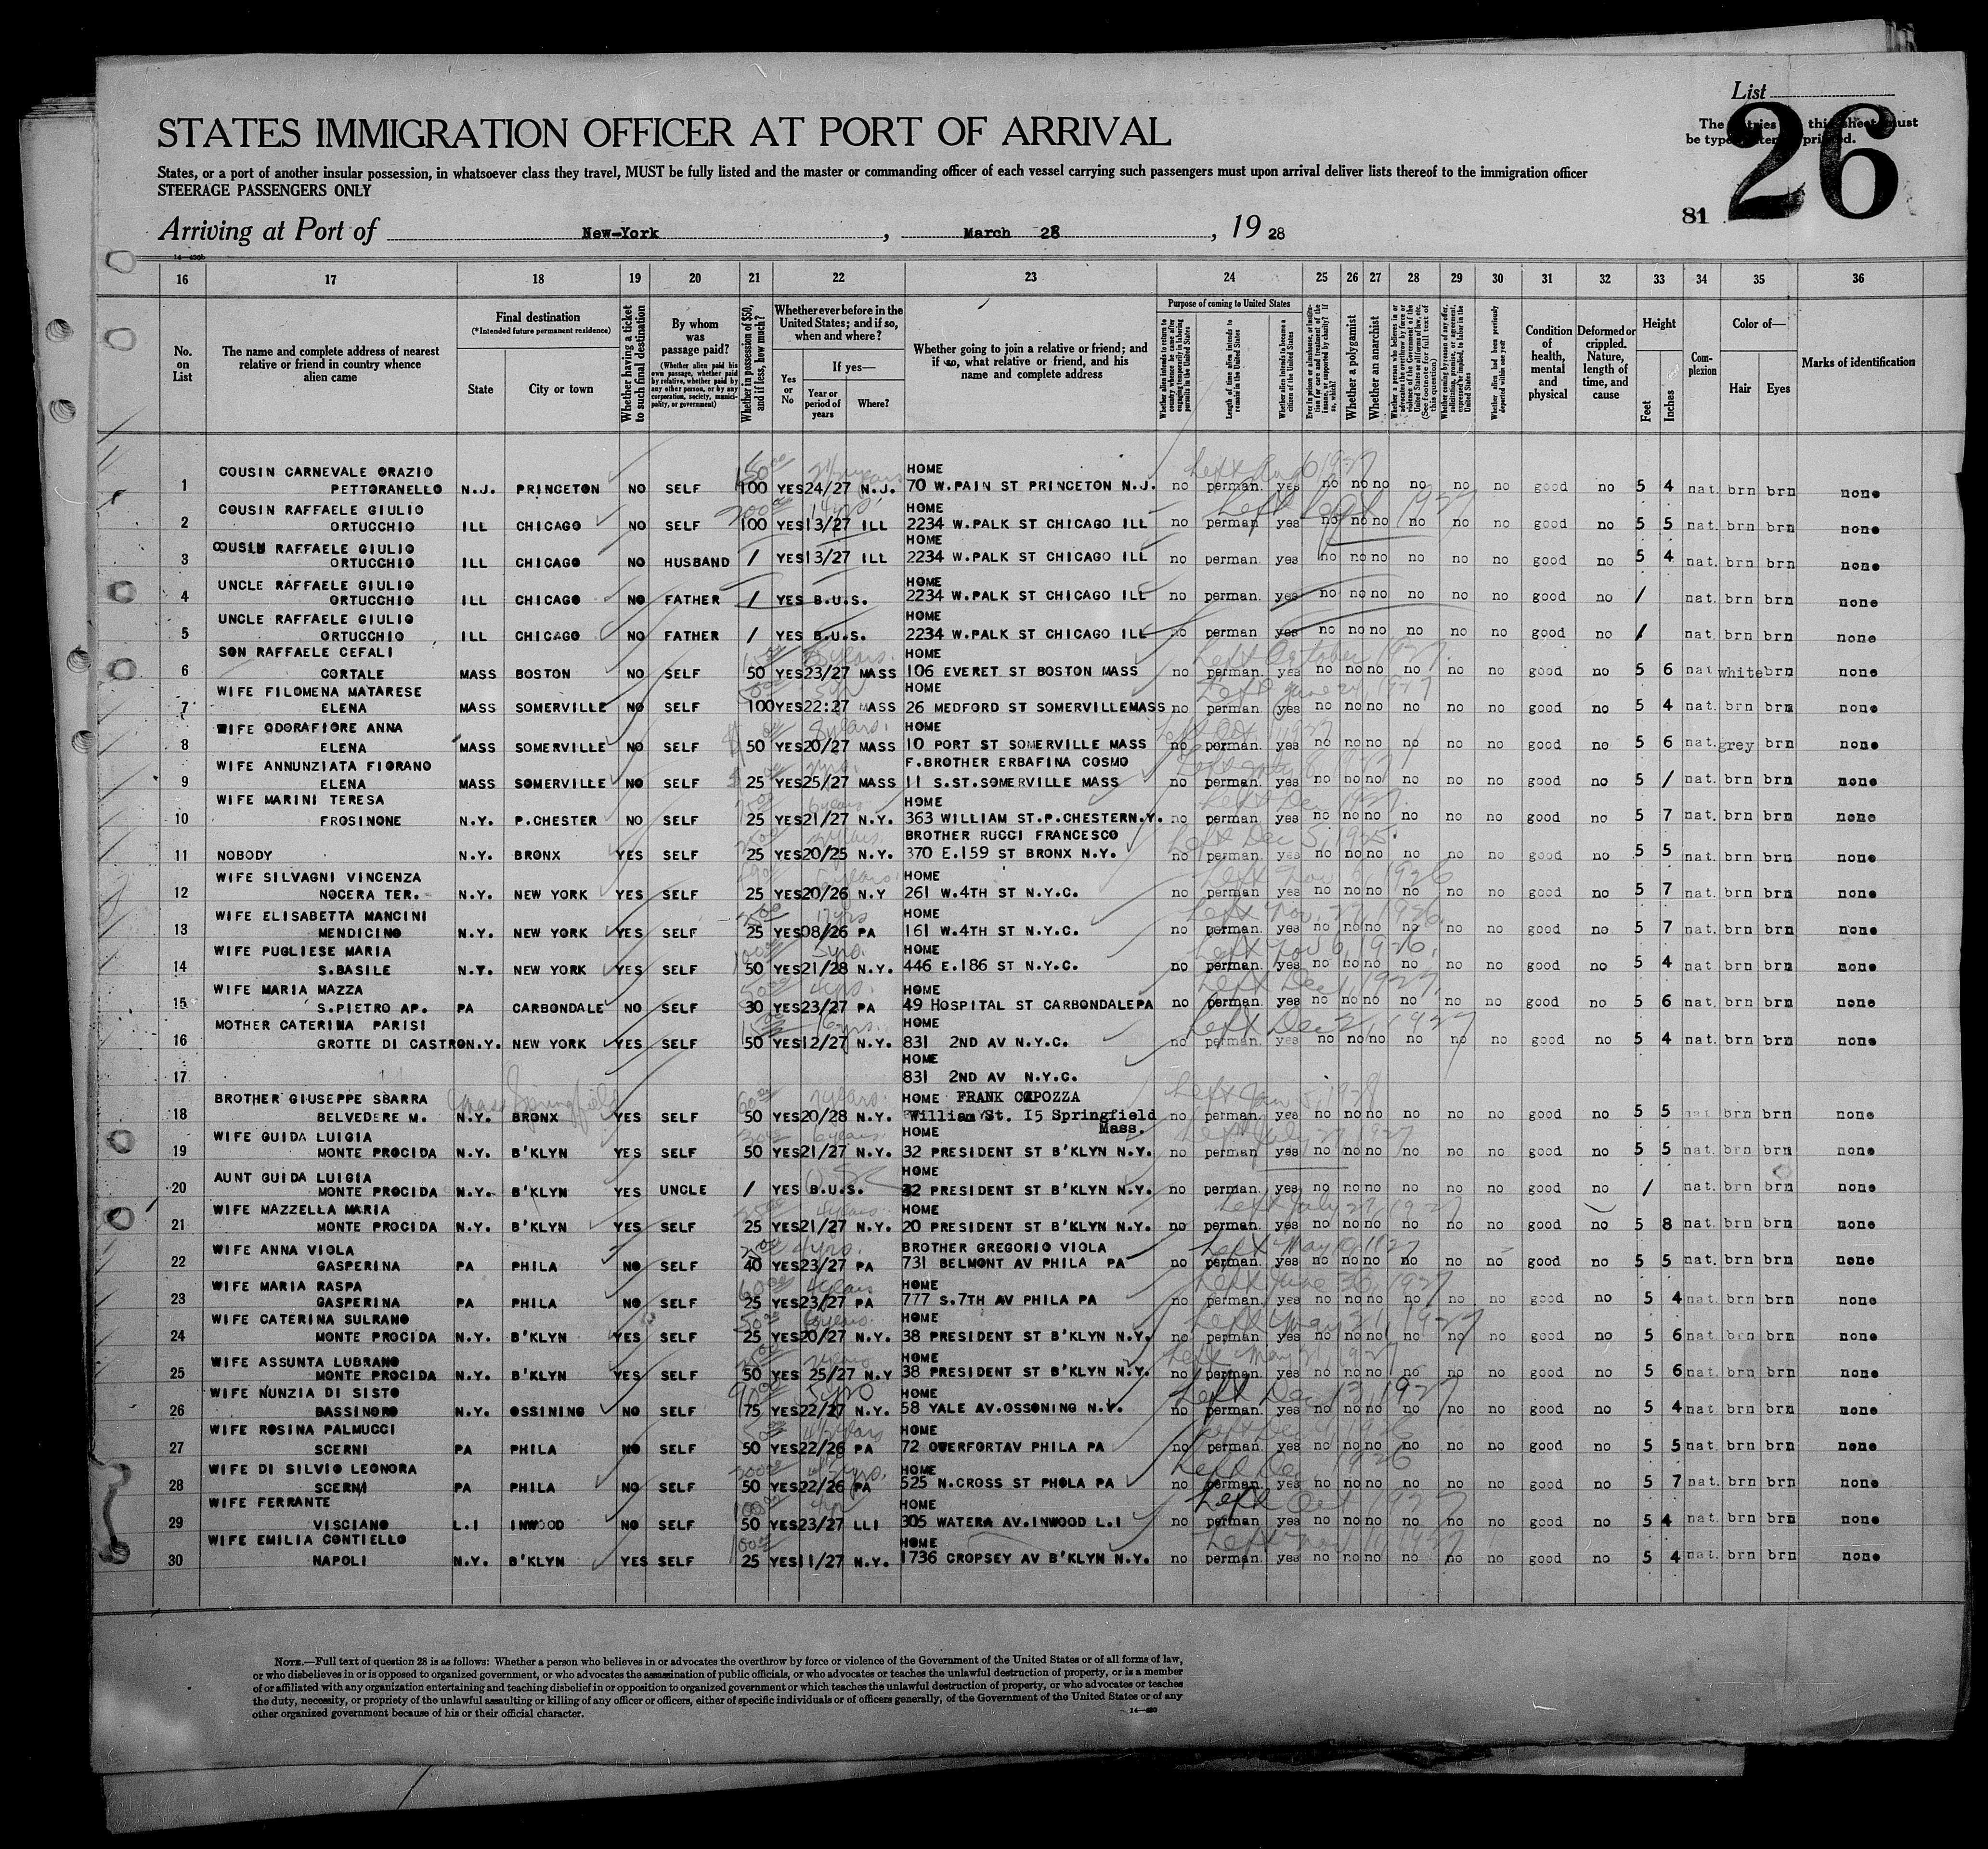 List
26
The entries this sheet must
be typewritten printed.
STATES IMMIGRATION OFFICER AT PORT OF ARRIVAL
States, or a port of another insular possession, in whatsoever class they travel, MUST be fully listed and the master or commanding officer of each vessel carrying such passengers must upon arrival deliver lists thereof to the immigration officer
STEERAGE PASSENGERS ONLY
81
Arriving at Port of New-York, March 28, 1928
14—430b
16 17 18 19 20 21 22 23 24 25 26 27 28 29 30 31 32 33 34 35 36
No. on List
The name and complete address of nearest relative or friend in country whence alien came
Final destination
(*Intended future permanent residence)
State
City or town
Whether having a ticket to such final destination
By whom was passage paid?
(Whether alien paid his own passage, whether paid by relative, whether paid by any other person, or by any corporation, society, municipality, or government)
Whether in possession of $50, and if less, how much?
Whether ever before in the United States; and if so, when and where?
Yes or No
If yes—
Year or period of years
Where?
Whether going to join a relative or friend; and if so, what relative or friend, and his name and complete address
Purpose of coming to United States
Whether alien intends to return to country whence he came after engaging temporarily in laboring pursuits in the United States
Length of time alien intends to remain in the United States
Whether alien intends to become a citizen of the United States
Ever in prison or almshouse, or institution for care and treatment of the insane, or supported by charity? If so, which?
Whether a polygamist
Whether an anarchist
Whether a person who believes in or advocates the overthrow by force or violence of the Government of the United States or all forms of law, etc. (See footnote for full text of this question)
Whether coming by reason of any offer, solicitation, promise, or agreement, expressed or implied, to labor in the United States
Whether alien had been previously deported within one year
Condition of health, mental and physical
Deformed or crippled. Nature, length of time, and cause
Height
Feet
Inches
Complexion
Color of—
Hair
Eyes
Marks of identification
COUSIN CARNEVALE ORAZIO HOME
1 PETTORANELLO N.J. PRINCETON NO SELF 100 YES 24/27 N.J. 70 W.PAIN ST PRINCETON N.J. no perman. yes no no no no no no good no 5 4 nat. brn brn none
COUSIN RAFFAELE GIULIO HOME
2 ORTUCCHIO ILL CHICAGO NO SELF 100 YES 13/27 ILL 2234 W.PALK ST CHICAGO ILL no perman. yes no no no no no no good no 5 5 nat. brn brn none
COUSIN RAFFAELE GIULIO HOME
3 ORTUCCHIO ILL CHICAGO NO HUSBAND / YES 13/27 ILL 2234 W.PALK ST CHICAGO ILL no perman. yes no no no no no no good no 5 4 nat. brn brn none
UNCLE RAFFAELE GIULIO HOME
4 ORTUCCHIO ILL CHICAGO NO FATHER / YES B.U.S. 2234 W.PALK ST CHICAGO ILL no perman. yes no no no no no no good no / nat. brn brn none
UNCLE RAFFAELE GIULIO HOME
5 ORTUCCHIO ILL CHICAGO NO FATHER / YES B.U.S. 2234 W.PALK ST CHICAGO ILL no perman yes no no no no no no good no / nat. brn brn none
SON RAFFAELE CEFALI HOME Left October, 1927.
6 CORTALE MASS BOSTON NO SELF 50 YES 23/27 MASS 106 EVERET ST BOSTON MASS no perman. yes no no no no no no good no 5 6 nat white brn none
WIFE FILOMENA MATARESE HOME Left June 24, 1927
7 ELENA MASS SOMERVILLE NO SELF 100 YES 22:27 MASS 26 MEDFORD ST SOMERVILLE MASS no perman. yes no no no no no no good no 5 4 nat. brn brn none
WIFE ODORAFIORE ANNA 8 years. HOME
8 ELENA MASS SOMERVILLE NO SELF 50 YES 20/27 MASS 10 PORT ST SOMERVILLE MASS no perman. yes no no no no no no good no 5 6 nat. grey brn none
WIFE ANNUNZIATA FIORANO F.BROTHER ERBAFINA COSMO
9 ELENA MASS SOMERVILLE NO SELF 25 YES 25/27 MASS 11 S.ST.SOMERVILLE MASS no perman. yes no no no no no no good no 5 / nat. brn brn none
WIFE MARINI TERESA 6 years HOME Left Dec 1927.
10 FROSINONE N.Y. P.CHESTER NO SELF 25 YES 21/27 N.Y. 363 WILLIAM ST.P.CHESTER N.Y. no perman yes no no no no no no good no 5 7 nat. brn brn none
BROTHER RUCCI FRANCESCO Left Dec 5, 1925.
11 NOBODY N.Y. BRONX YES SELF 25 YES 20/25 N.Y. 370 E.159 ST BRONX N.Y. no perman. yes no no no no no no good no 5 5 nat. brn brn none
WIFE SILVAGNI VINCENZA HOME Left Nov 6, 1926
12 NOCERA TER. N.Y. NEW YORK YES SELF 25 YES 20/26 N.Y 261 W.4TH ST N.Y.C. no perman. yes no no no no no no good no 5 7 nat. brn brn none
WIFE ELISABETTA MANCINI 17 yrs HOME Left Nov. 27, 1926.
13 MENDICINO N.Y. NEW YORK YES SELF 25 YES 08/26 PA 161 W.4TH ST N.Y.C. no perman. yes no no no no no no good no 5 7 nat. brn brn none
WIFE PUGLIESE MARIA 5 yrs. HOME Left Nov 6, 1926.
14 S.BASILE N.Y. NEW YORK YES SELF 50 YES 21/28 N.Y. 446 E.186 ST N.Y.C. no perman. yes no no no no no no good no 5 4 nat. brn brn none
WIFE MARIA MAZZA 4 yrs. HOME Left Dec 1, 1927.
15 S.PIETRO AP. PA CARBONDALE NO SELF 30 YES 23/27 PA 49 HOSPITAL ST CARBONDALE PA no perman. yes no no no no no no good no 5 6 nat. brn brn none
MOTHER CATERINA PARISI HOME Left Dec 2, 1927
16 GROTTE DI CASTRO N.Y. NEW YORK YES SELF 50 YES 12/27 N.Y. 831 2ND AV N.Y.C. no perman. yes no no no no no no good no 5 4 nat. brn brn none
HOME
17 831 2ND AV N.Y.C.
BROTHER GIUSEPPE SBARRA Mass Springfield HOME FRANK CAPOZZA
18 BELVEDERE M. N.Y. BRONX YES SELF 50 YES 20/28 N.Y. William St. 15 Springfield no perman. yes no no no no no no good no 5 5 nat brn brn none
Mass.
WIFE GUIDA LUIGIA 6 years HOME Left July 27 1927
19 MONTE PROCIDA N.Y. B'KLYN YES SELF 50 YES 21/27 N.Y. 32 PRESIDENT ST B'KLYN N.Y. no perman yes no no no no no no good no 5 5 nat. brn brn none
AUNT GUIDA LUIGIA HOME
20 MONTE PROCIDA N.Y. B'KLYN YES UNCLE / YES B.U.S. 32 PRESIDENT ST B'KLYN N.Y. no perman. yes no no no no no no good no / nat. brn brn none
WIFE MAZZELLA MARIA HOME Left July 27, 1927
21 MONTE PROCIDA N.Y. B'KLYN YES SELF 25 YES 21/27 N.Y. 20 PRESIDENT ST B'KLYN N.Y. no perman. yes no no no no no no good no 5 8 nat. brn brn none
WIFE ANNA VIOLA 4 yrs. BROTHER GREGORIO VIOLA
22 GASPERINA PA PHILA NO SELF 40 YES 23/27 PA 731 BELMONT AV PHILA PA no perman. yes no no no no no no good no 5 5 nat. brn brn none
WIFE MARIA RASPA 4 years HOME Left June 30, 1927
23 GASPERINA PA PHILA NO SELF 25 YES 23/27 PA 777 S.7TH AV PHILA PA no perman. yes no no no no no no good no 5 4 nat. brn brn none
WIFE CATERINA SULRANO HOME Left May 21, 1927
24 MONTE PROCIDA N.Y. B'KLYN YES SELF 25 YES 20/27 N.Y. 38 PRESIDENT ST B'KLYN N.Y. no perman yes no no no no no no good no 5 6 nat. brn brn none
WIFE ASSUNTA LUBRANO 2 years HOME Left May 21, 1927
25 MONTE PROCIDA N.Y. B'KLYN YES SELF 50 YES 25/27 N.Y 38 PRESIDENT ST B'KLYN N.Y. no perman. yes no no no no no no good no 5 6 nat. brn brn none
WIFE NUNZIA DI SISTO 5 yrs HOME Left Dec 13, 1927
26 BASSINORO N.Y. OSSINING NO SELF 75 YES 22/27 N.Y. 58 YALE AV.OSSONING N.Y. no perman. yes no no no no no no good no 5 4 nat. brn brn none
WIFE ROSINA PALMUCCI HOME
27 SCERNI PA PHILA NO SELF 50 YES 22/26 PA 72 OVERFORTAV PHILA PA no perman. yes no no no no no no good no 5 5 nat. brn brn none
WIFE DI SILVIO LEONORA HOME Left Dec 1926
28 SCERNI PA PHILA NO SELF 50 YES 22/26 PA 525 N.CROSS ST PHOLA PA no perman. yes no no no no no no good no 5 7 nat. brn brn none
WIFE FERRANTE HOME Left Oct 1927
29 VISCIANO L.I INWOOD NO SELF 50 YES 23/27 LLI 305 WATERA AV.INWOOD L.I no perman. yes no no no no no no good no 5 4 nat. brn brn none
WIFE EMILIA CONTIELLO HOME Left Nov 11, 1927
30 NAPOLI N.Y. B'KLYN YES SELF 25 YES 11/27 N.Y. 1736 CROPSEY AV B'KLYN N.Y. no perman. yes no no no no no no good no 5 4 nat. brn brn none
NOTE.—Full text of question 28 is as follows: Whether a person who believes in or advocates the overthrow by force or violence of the Government of the United States or of all forms of law,
or who disbelieves in or is opposed to organized government, or who advocates the assassination of public officials, or who advocates or teaches the unlawful destruction of property, or is a member
of or affiliated with any organization entertaining and teaching disbelief in or opposition to organized government or which teaches the unlawful destruction of property, or who advocates or teaches
the duty, necessity, or propriety of the unlawful assaulting or killing of any officer or officers, either of specific individuals or of officers generally, of the Government of the United States or of any
other organized government because of his or their official character.
14—430